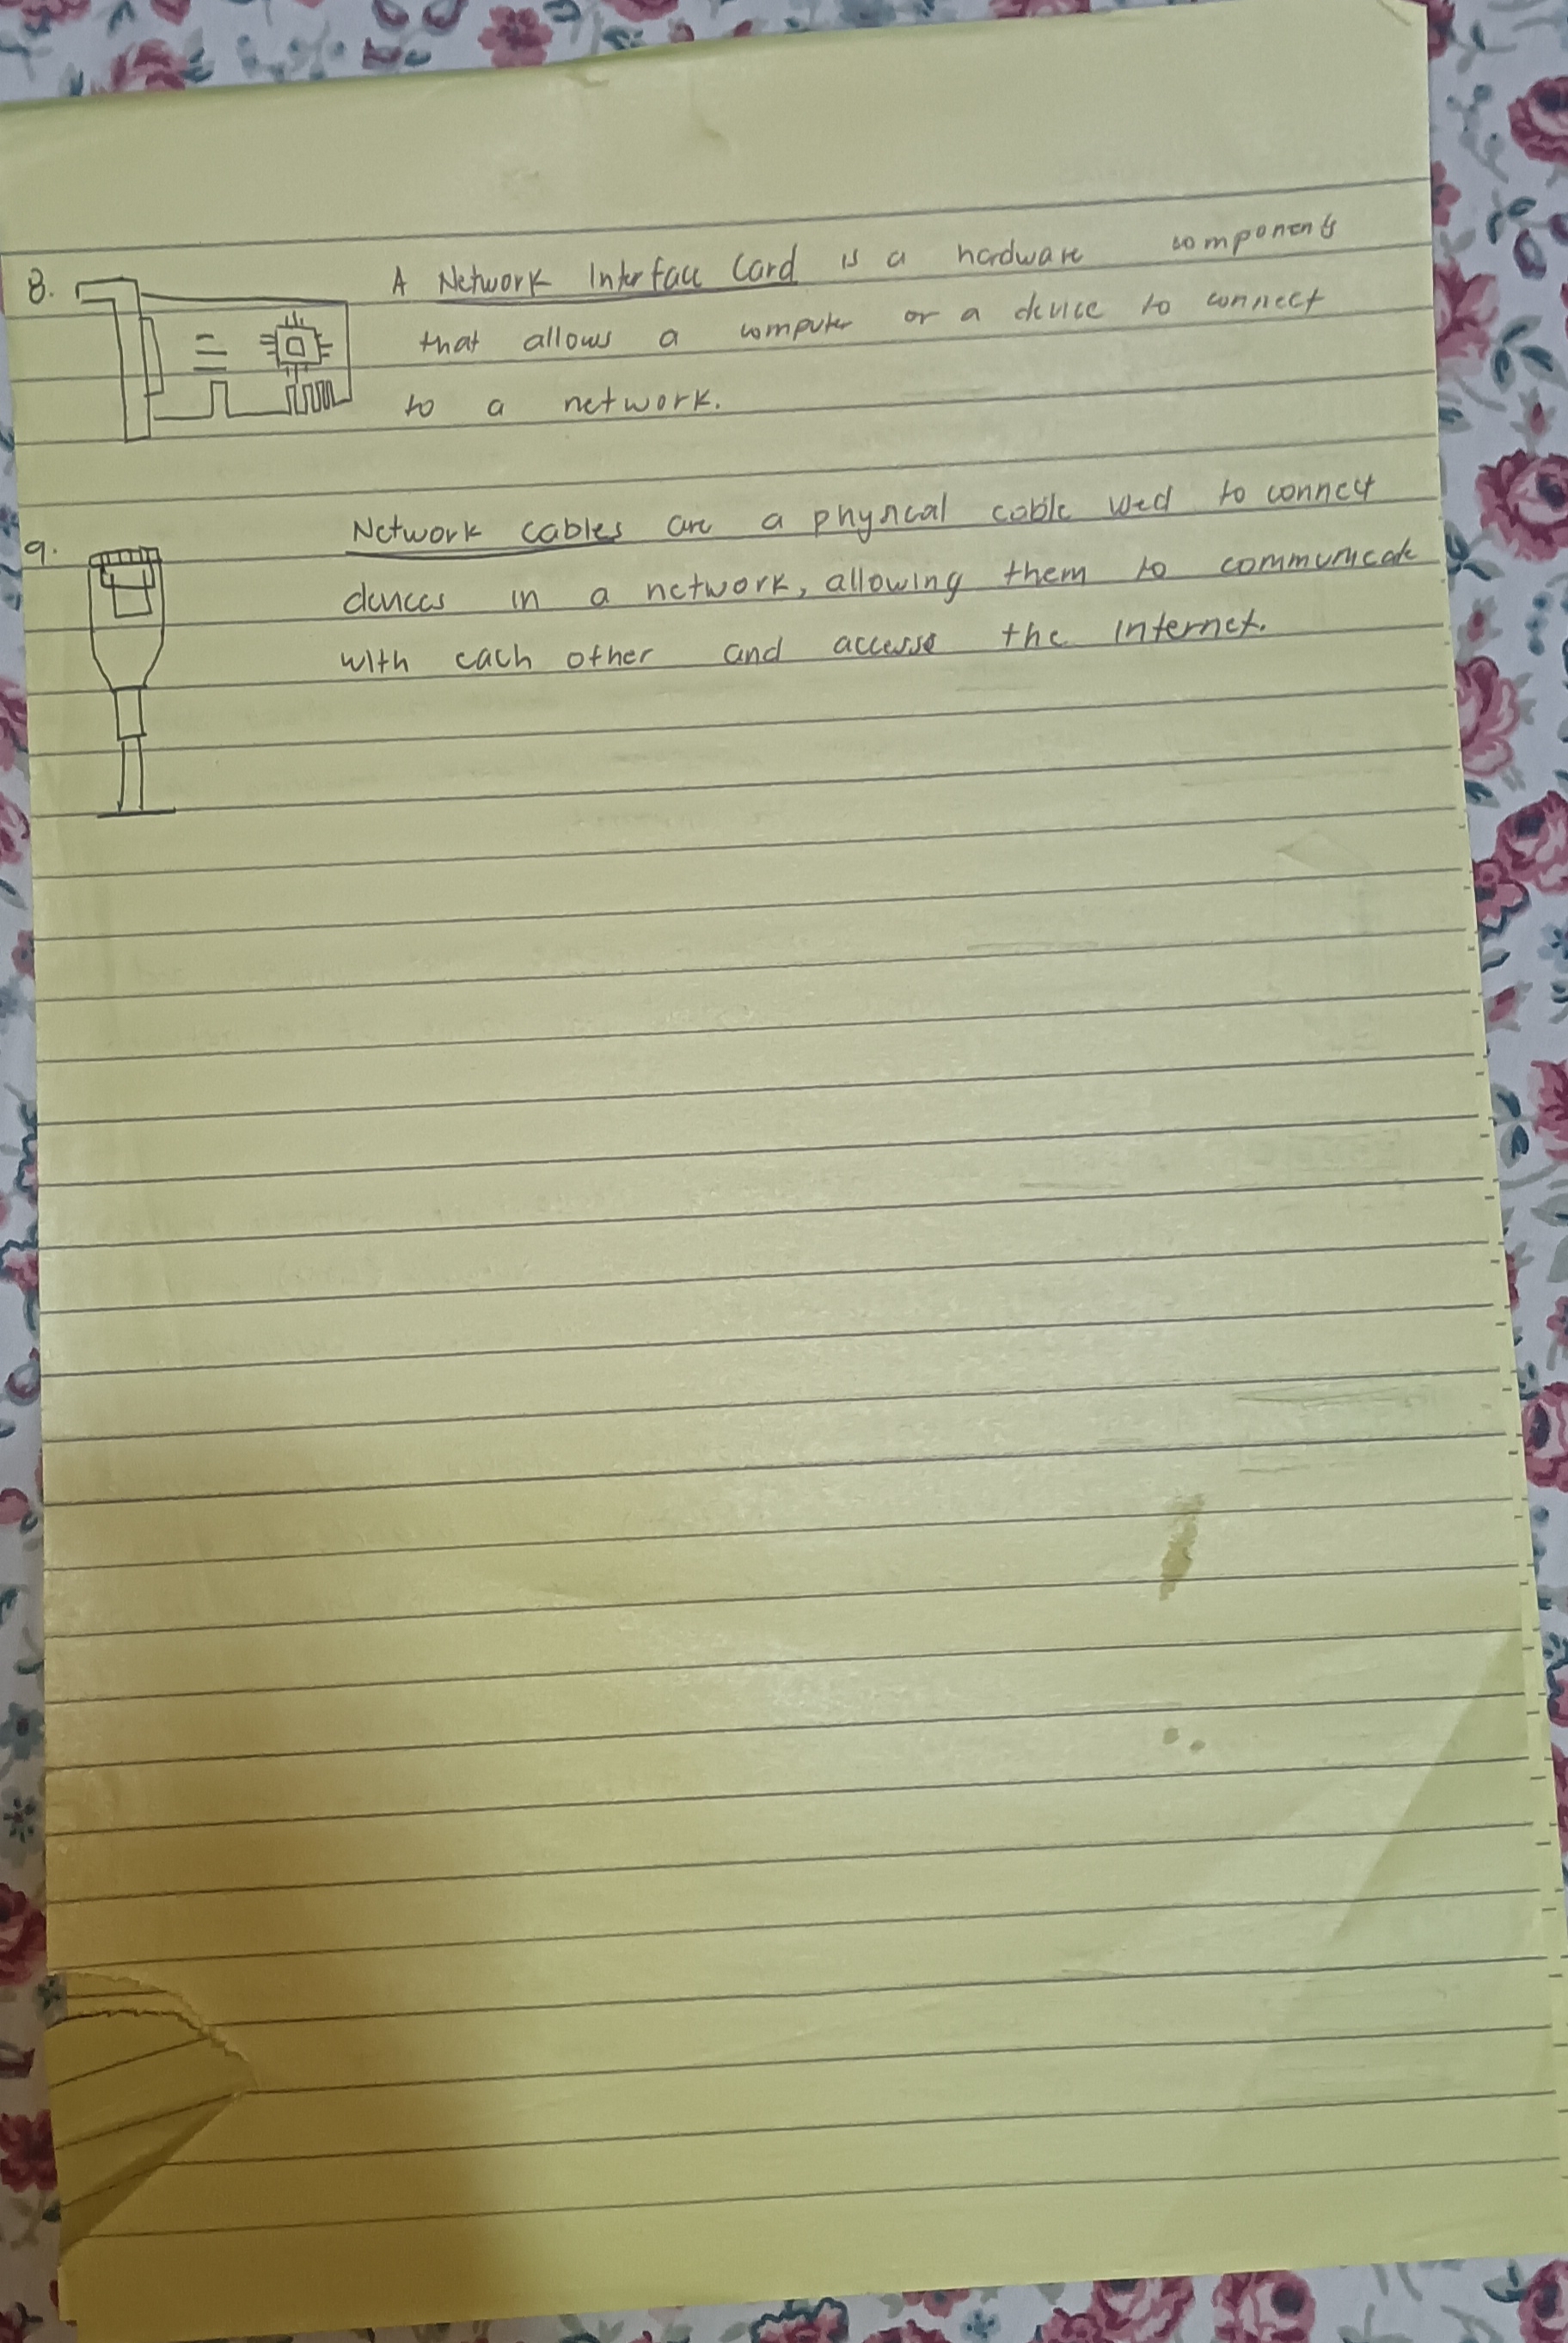 8. A Network Interface Card is a hardware components
that allows a computer or a device to connect
to a network.
9. Network cables are a physical cable used to connect
devices in a network, allowing them to communicate
with each other and accesse the internet.